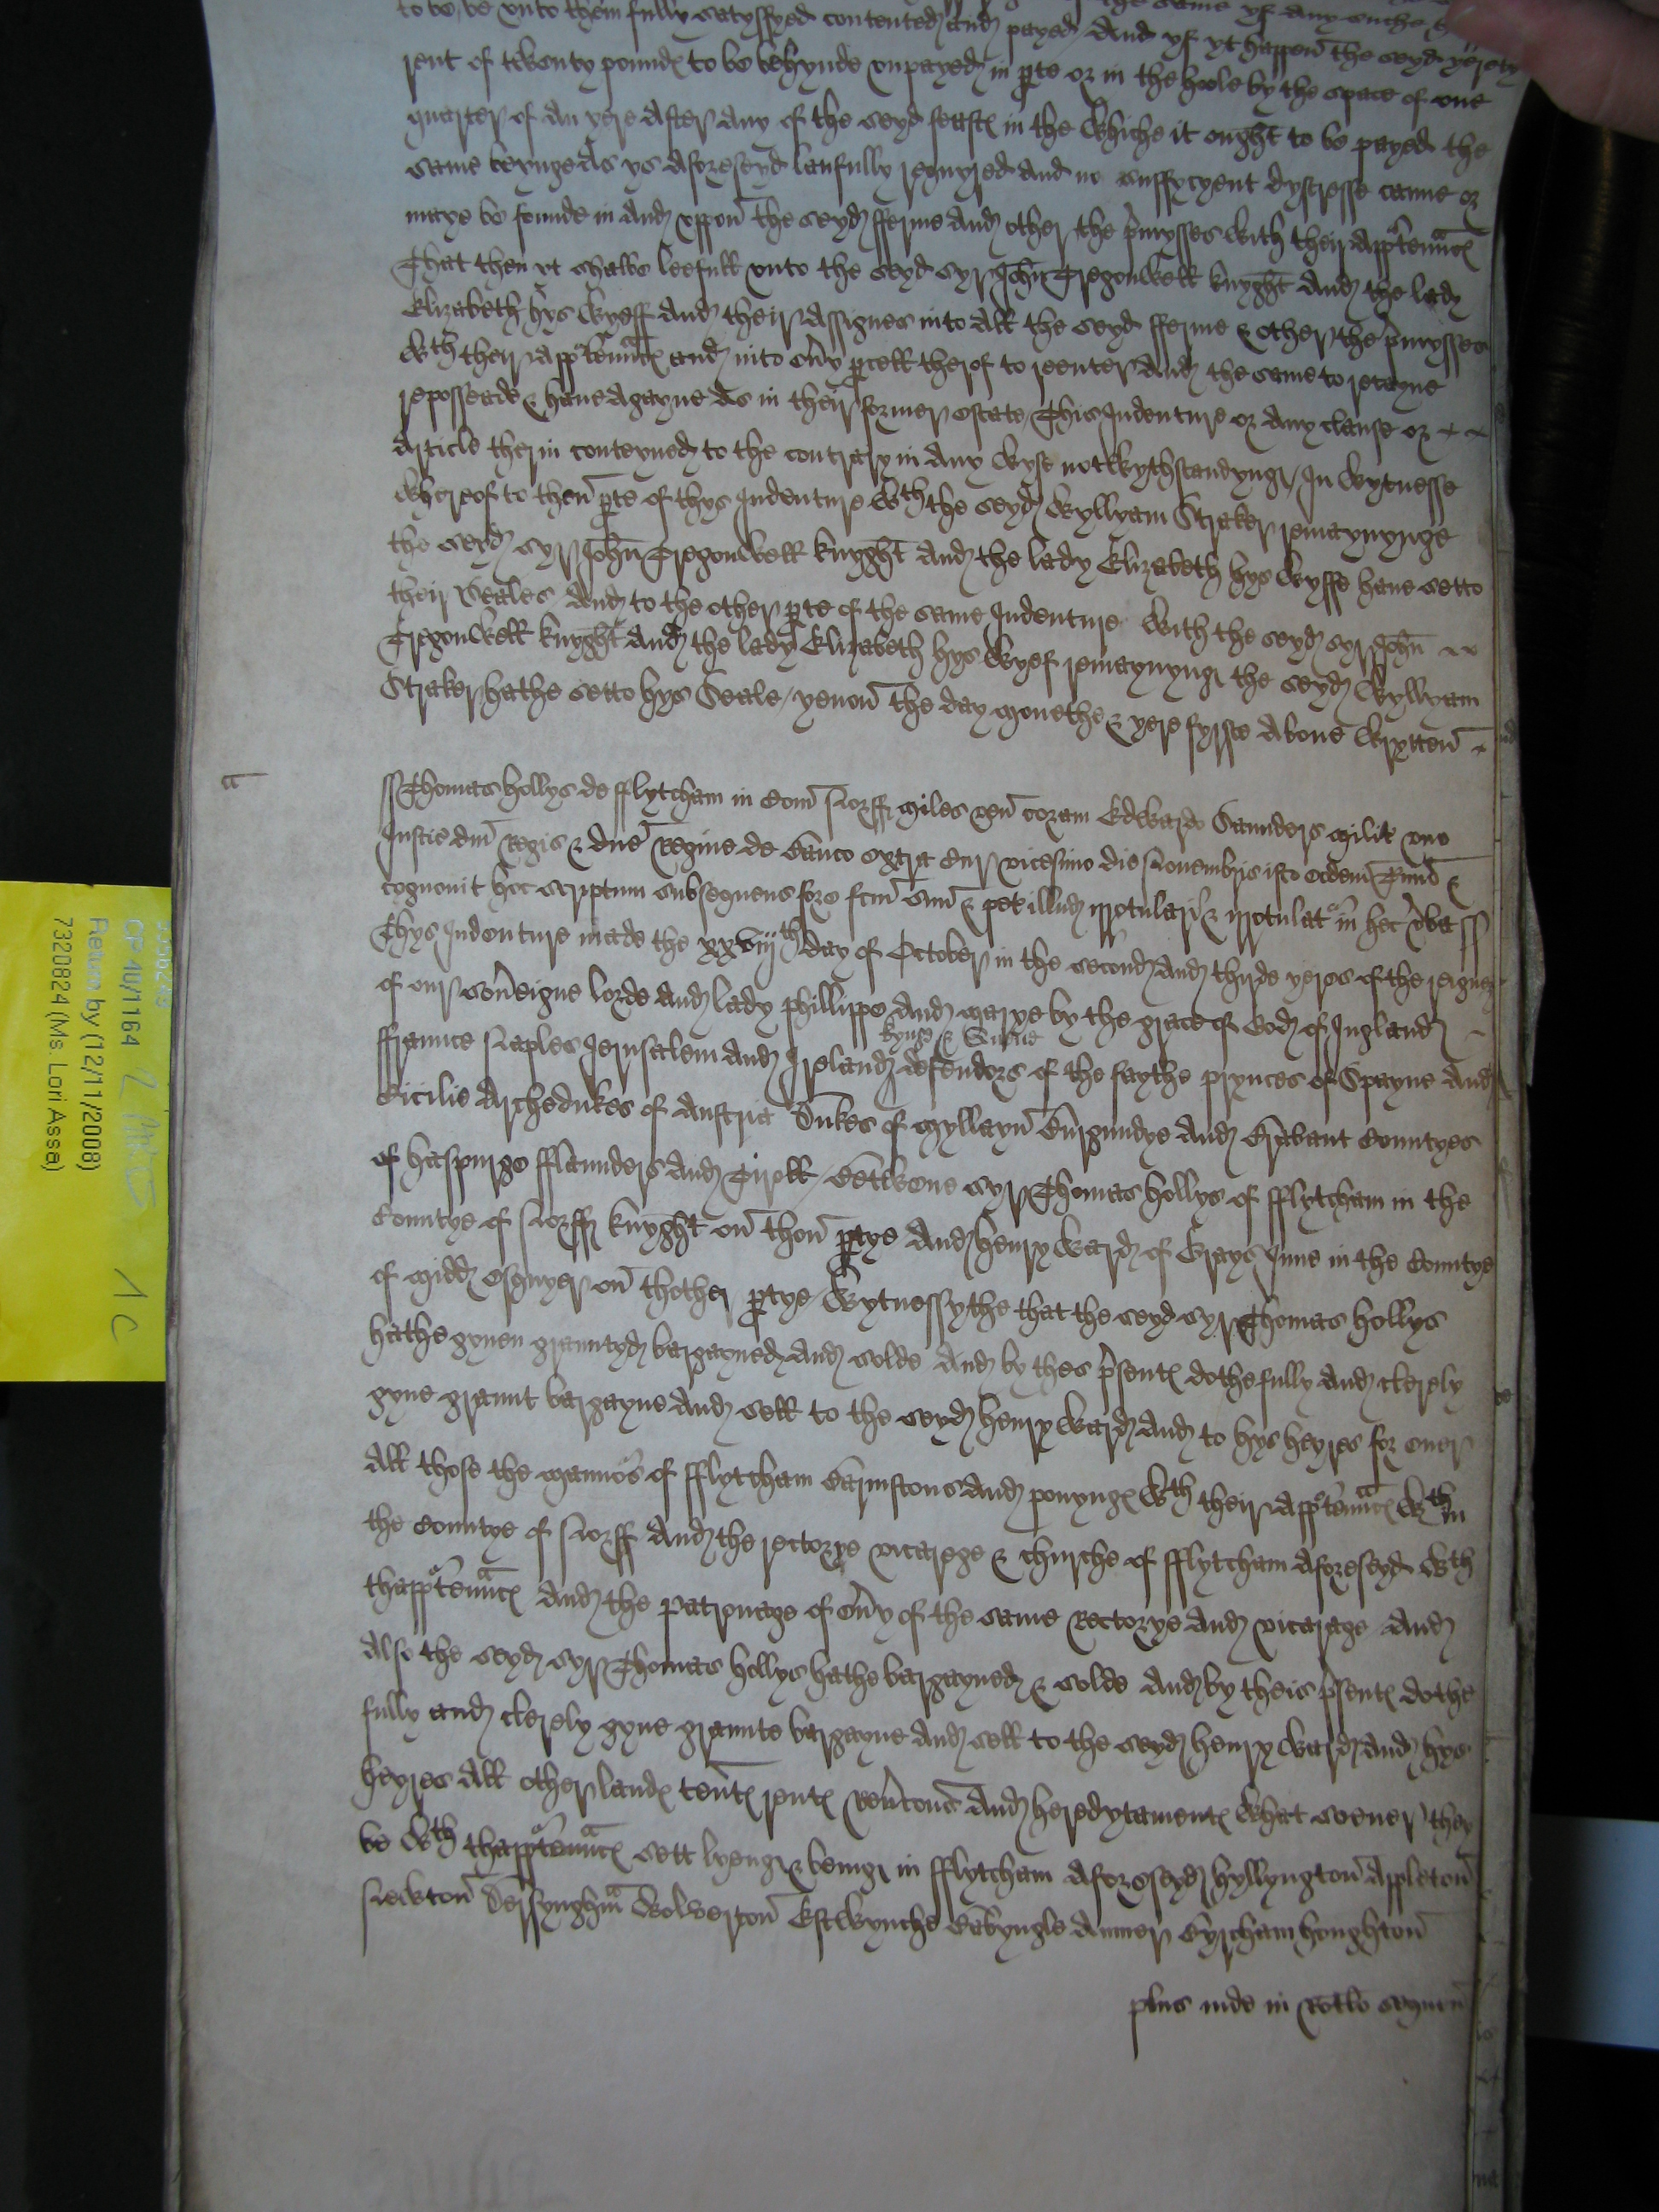 to be, be unto them fully satysffyed contented and payed And yf yt happen the seyd yerely
rent of twenty poundes to be behynde unpayed in pte or in the hoole by the space of one
quarter of an yere after any of the seyd feastes in the whiche it ought to be payed the
same beynge as ys aforeseyd laufully requyred and no suffycyent dystresse canne or
maye be founde in and uppon the seyd fferme and other the pmysses with their apptennces
That then yt shalbe leefull unto the seyd syr John Tregonwell knyght and the lady
Elizabeth hys wyeff and their assignes into all the seyd fferme & other the pmysses
wth their apptennces and into evy pcell therof to reenter and the same to retayne
repossede & have agayne as in their former estate This Indenture or any clause or
article therin conteyned to the contrary in any wyse notwythstandynge / In wytnesse
whereof to then pte of thys Indenture wth the seyd Wyllyam Straker remaynynge
the seyd syr John Tregonwell knyght and the lady Elizabeth hys wyffe have setto
their Seales / And to the other pte of the same Indenture with the seyd syr John
Tregonwell knyght and the lady Elizabeth hys wyef remaynynge the seyd Wyllyam
Straker hathe setto hys Seale / yeven the day monethe & yere fyrste above wrytten
ss Thomas Hollys de fflytcham in Com Norff Miles ven coram Edwardo Saunders milit uno
Justic dni Regis & dne Regine de Banco extra cur vicesimo die Novembris isto eodem Tmino &
cognovit hoc scriptum subsequens fore fcm suum & pet illud irrotulari & irrotulat in hec vba ss
Thys Indenture made the xxviijth day of October in the second and thyrde yeres of the reignes
of our soveigne lorde and lady Phillippe and Marye by the grace of God of Ingland
kyng & Quene
ffraunce Naples Jerusalem and Ireland defendors of the faythe prynces of Spayne and
Cicilie Archedukes of Austria Dukes of Myllayn Burgundye and Brabant Countyes
of Haspurge fflaunders and Tiroll / Betwene syr Thomas Hollys of fflytcham in the
Countye of Norff knyght on thon ptye And Henry Ward of Grays Inne in the Countye
of Midd esquyer on thother ptye / Wytnessythe that the seyd syr Thomas Hollys
hathe gyven grauntyd bargayned and solde and by thes psentes dothe fully and clerely
gyve graunt bargayne and sell to the seyd Henry Ward and to hys heyres for ever
All those the mannos of fflytcham Barnstons and ponynges wth their apptennces wthin
the Countye of Norff and the rectorye vicarege & churche of fflytcham aforeseyd wth
thapptennces and the patronage of evy of the same Rectorye and vicarage And
also the seyd syr Thomas Hollys hathe bargayned & solde and by theis psentes dothe
fully and clerely gyve graunte bargayne and sell to the seyd Henry Ward and hys
heyres All other landes tentes rentes revcons and heredytamentes what soever they
be wth thapptennces sett lyenge & beinge in fflytcham aforeseyd Hyllyngton Appleton
Newton Dersynghm Wolverton Estwynche Babyngle Anmer Byrcham Houghton
plus inde in Rotlo
CP 40/1164
Return by (12/11/2008)
7320824 (Ms. Lori Assa)
1c